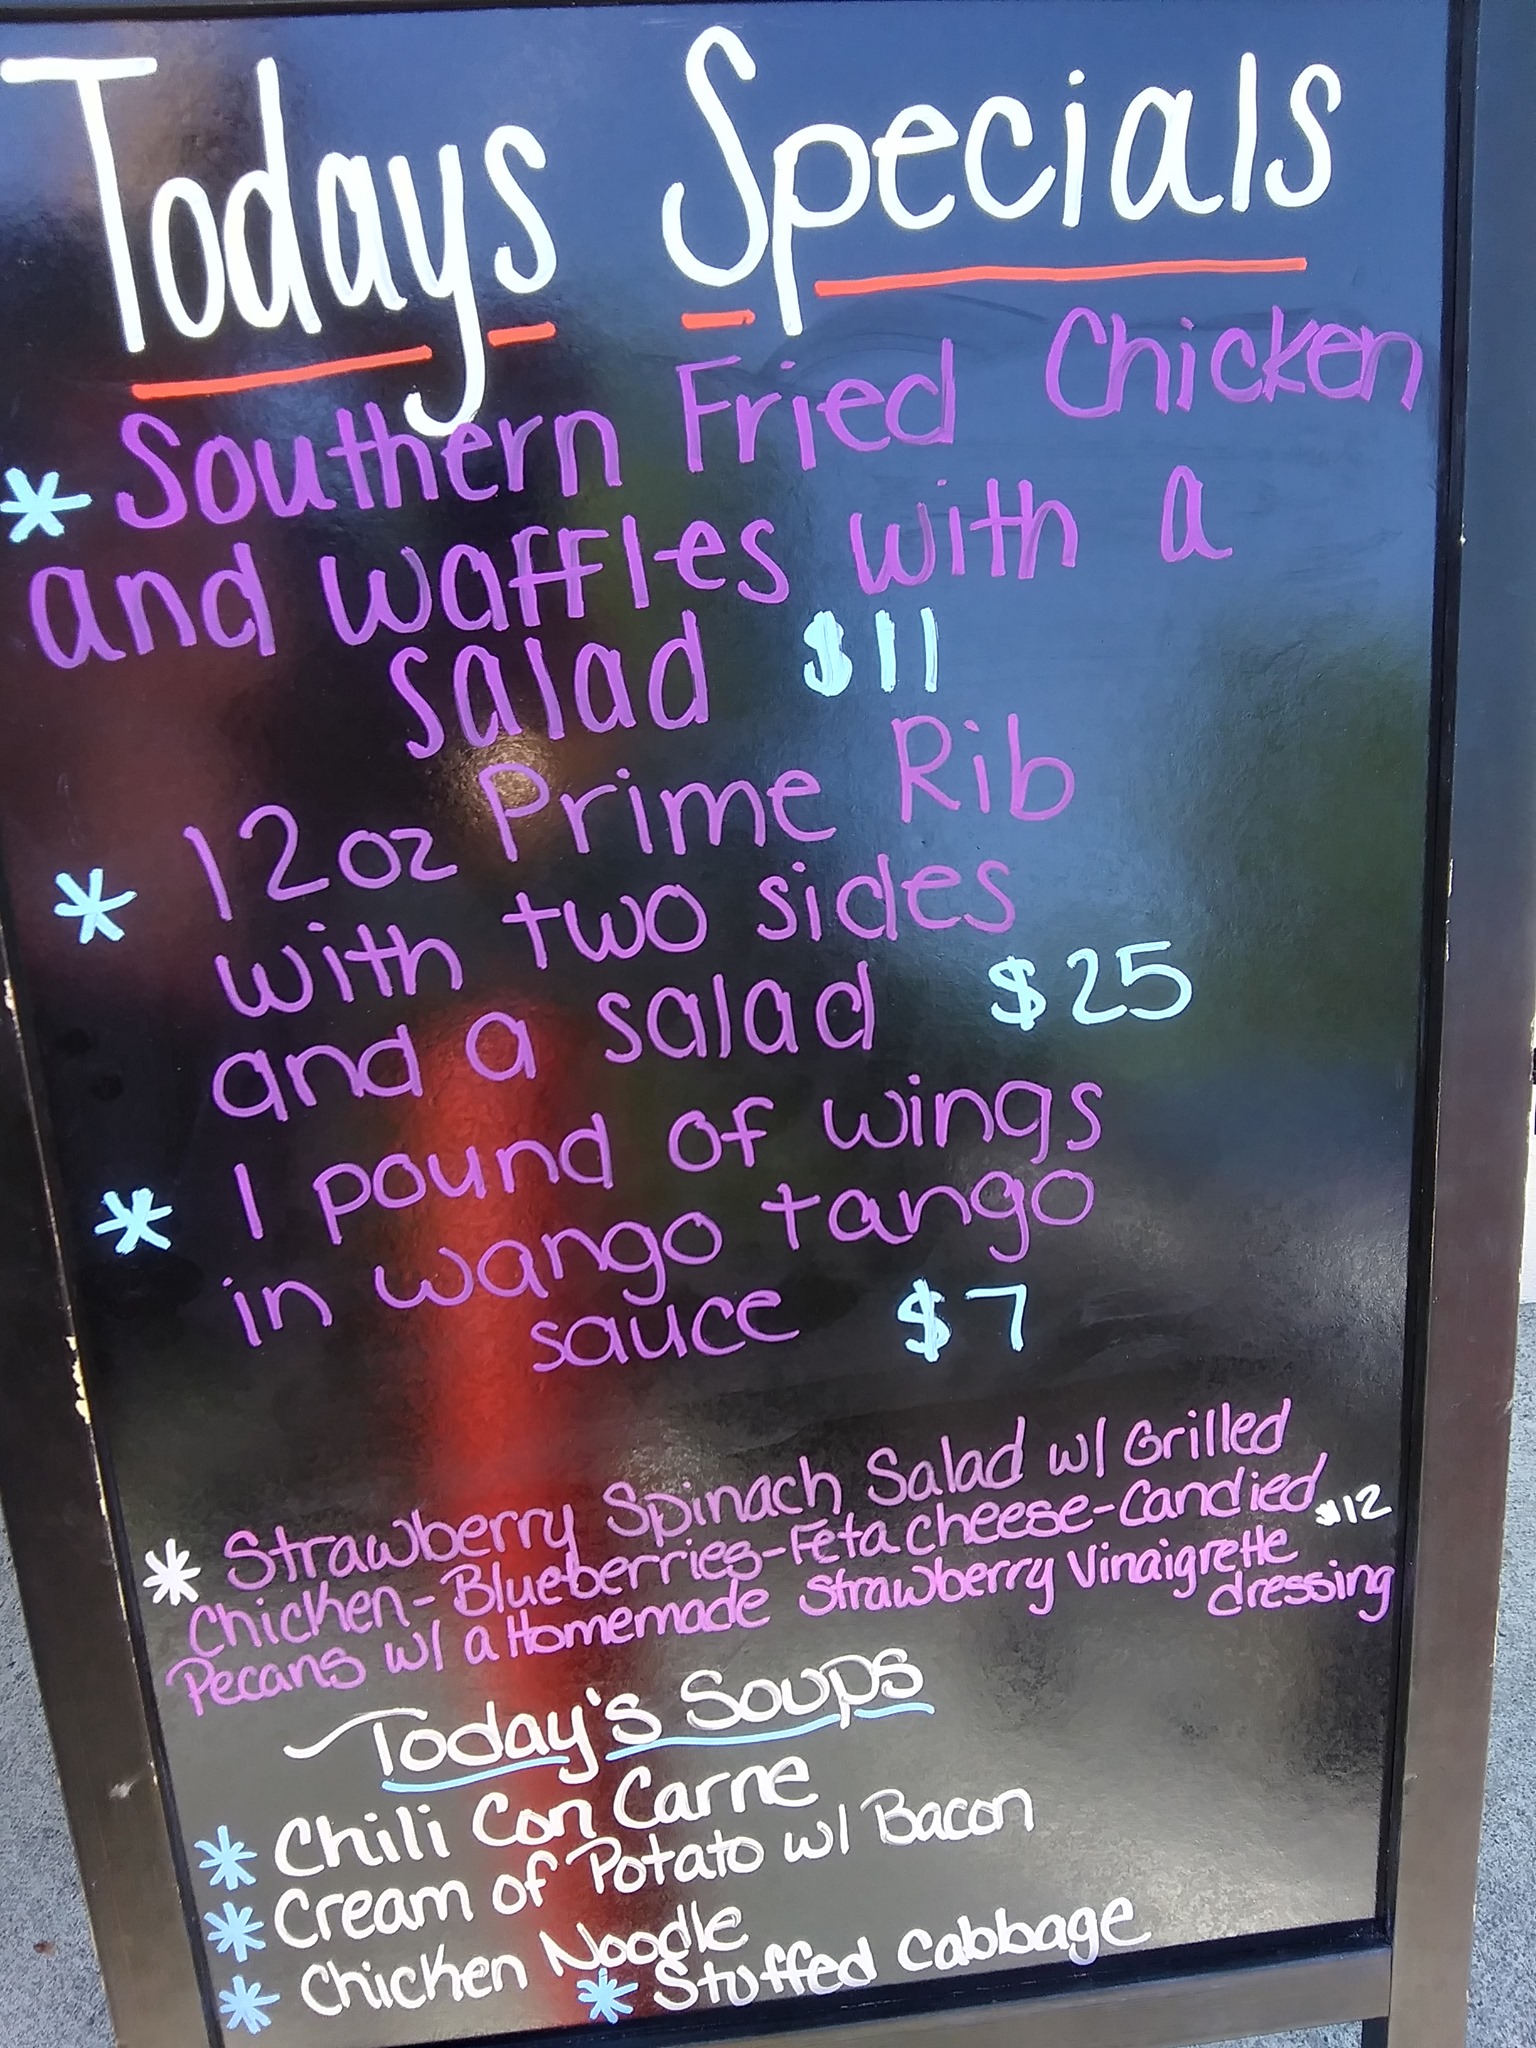 Todays Specials
* Southern Fried Chicken
and waffles with a
salad $11
* 12oz Prime Rib
with two sides
and a salad $25
* 1 pound of wings
in wango tango
sauce $7
* Strawberry Spinach Salad w/ Grilled
Chicken - Blueberries - Feta cheese - Candied $12
Pecans w/ a Homemade Strawberry Vinaigrette
dressing
Today's Soups
* Chili Con Carne
* Cream of Potato w/ Bacon
* Chicken Noodle
* Stuffed Cabbage